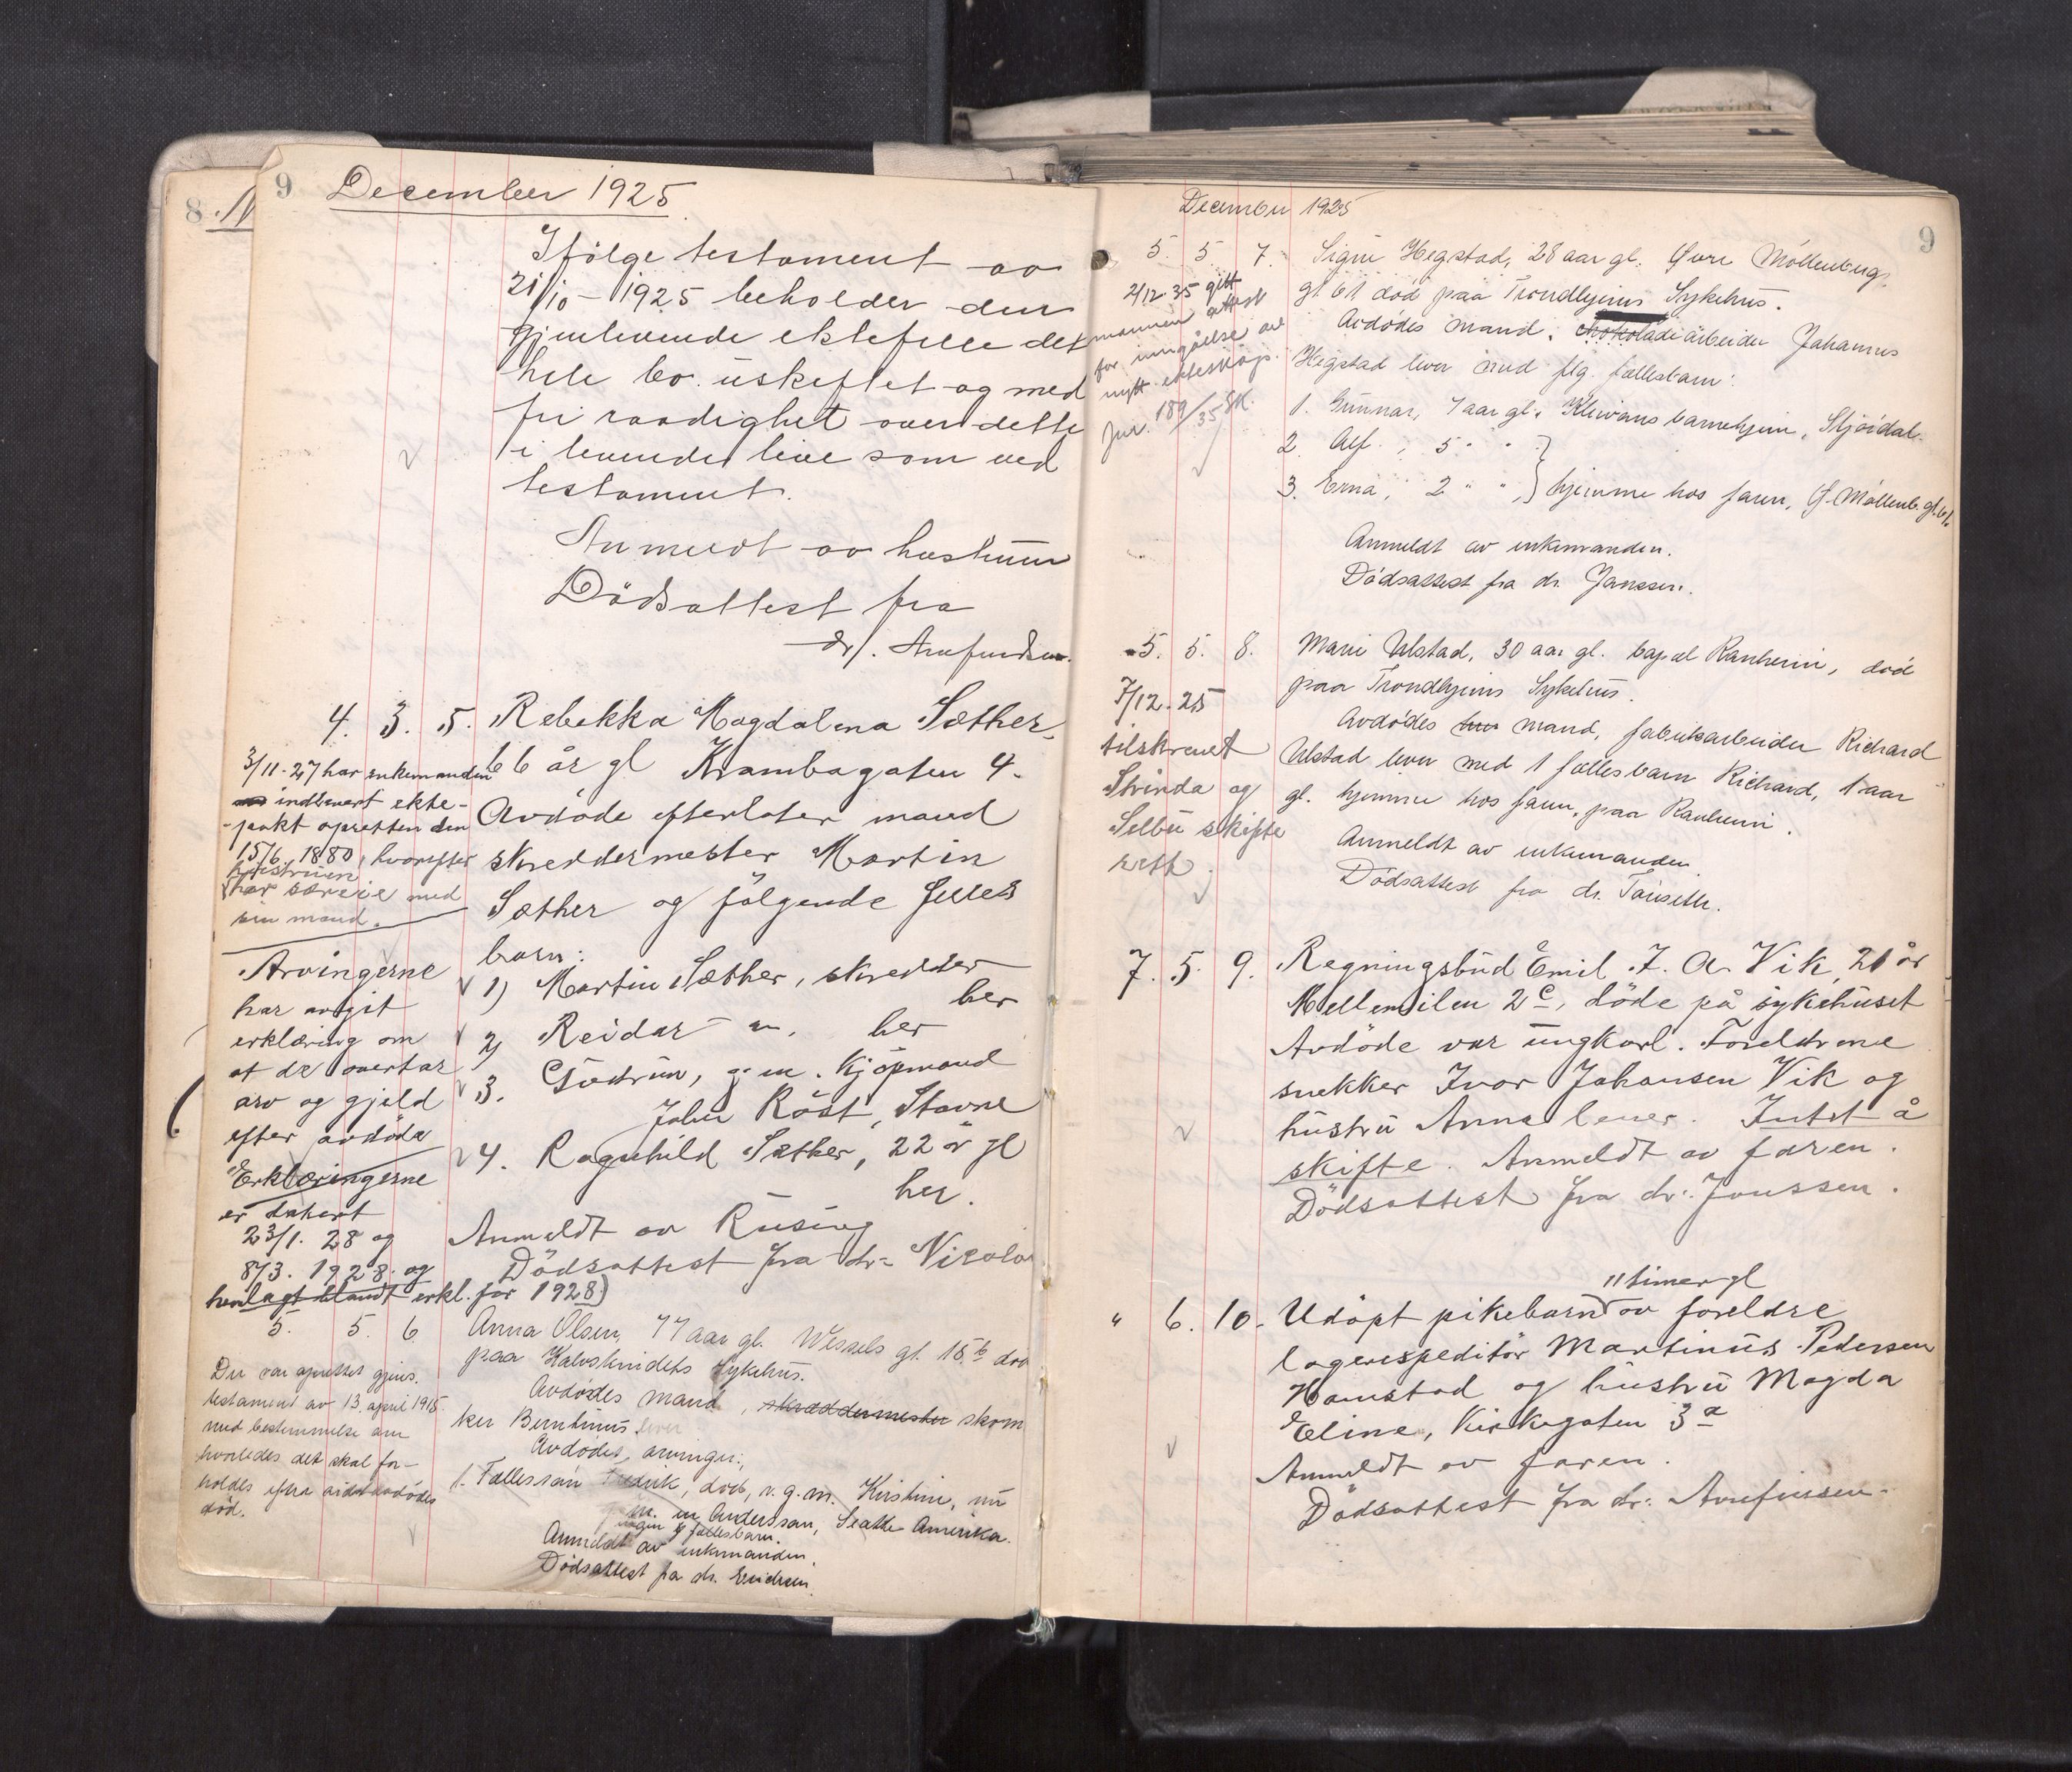 8.
9 December 1925
Ifölge testament av
21/10 - 1925 beholder den
gjenlevende ektefelle det
hele bo uskiftet og med
fri raadighet over dette
i levende live som ved
testament.
Anmeldt av hustruen
Dödsattest fra
dr. Arnfinsen.
4. 3. 5. Rebekka Magdalena Sæther,
66 år gl Krambugaten 4.
Avdöde efterlater mand
skreddermester Martin
Sæther og fölgende felles
barn:
1) Martin Sæther, skredder
her
2) Reidar — " — her
3. Gudrun, g. m. kjöpmand
John Röst, Stavne
4. Ragnhild Sæther, 22 år gl
her.
Anmeldt av Rusing
Dödsattest fra dr.
3/11-27 har enkemanden
indlevert ekte-
pakt oprettet den
15/6. 1880, hvorefter
hustruen
har særeie med
sin mand.
Arvingerne
har avgit
erklæring om
at de overtar
arv og gjeld
efter avdöde
Erklæringerne
er datert
23/1. 28 og
8/3. 1928 og
henlagt blandt erkl. for 1928)
5. 5. 6. Anna Olsen, 77 aar gl. Wessels gt. 15 b död
paa Kalvskindets Sykehus.
Avdödes mand, skræddermester skom
ker Berntinus lever
Avdödes arvinger:
1. Fællessön Fredrik, död, v. g. m. Kirstine, nu
g. m. en Anderssan, Seattle Amerika.
ingen fællesbarn.
Anmeldt av enkemanden.
Dödsattest fra dr.
Der var oprettet gjens.
testament av 13. april 1915
med bestemmelse om
hvorledes det skal for-
holdes efter sidstavdödes
död.
December 1925
9
5. 5. 7. Sigrun Hegstad, 28 aar gl. Övre Möllenberg
gt. 61 död paa Trondhjems Sykehus.
Avdödes mand, chokoladearbeider Johannes
Hegstad lever med flg. fællesbarn:
1. Gunnar, 7 aar gl., barnehjem, Stjördal.
2. Alf, 5 " "
3. Erna, 2 " " } hjemme hos faren, Ö. Möllenb. gt. 61.
Anmeldt av enkemanden.
Dödsattest fra dr. Janssen.
2/12-35 gitt
mannen attest
for inngåelse av
nytt ekteskap.
Jnr. 189/35 Sk.
5. 5. 8. Marie Ulstad, 30 aar gl. bopæl Ranheim, död
paa Trondhjems Sykehus.
Avdödes mand, fabrikarbeider Richard
Ulstad lever med 1 fællesbarn Richard, 1 aar
gl. hjemme hos faren, paa Ranheim.
Anmeldt av enkemanden.
Dödsattest fra dr.
7/12-25
tilskrevet
Strinda og
Selbu skifte
rett.
7. 5. 9. Regningsbud Emil J. A. Vik, 21 år
Mellemilen 2 c, döde på sykehuset
Avdöde var ungkarl. Foreldrene
snekker Ivar Johansen Vik og
hustru Anna lever. Intet å
skifte. Anmeldt av faren.
Dödsattest fra dr. Janssen.
11 timer gl
" 6. 10. Udöpt pikebarn av foreldre
lagerekspeditör Martinus Pedersen
Hamstad og hustru Magda
Eline, Kirkegaten 3 a
Anmeldt av faren.
Dödsattest fra dr. Arnfinsen.